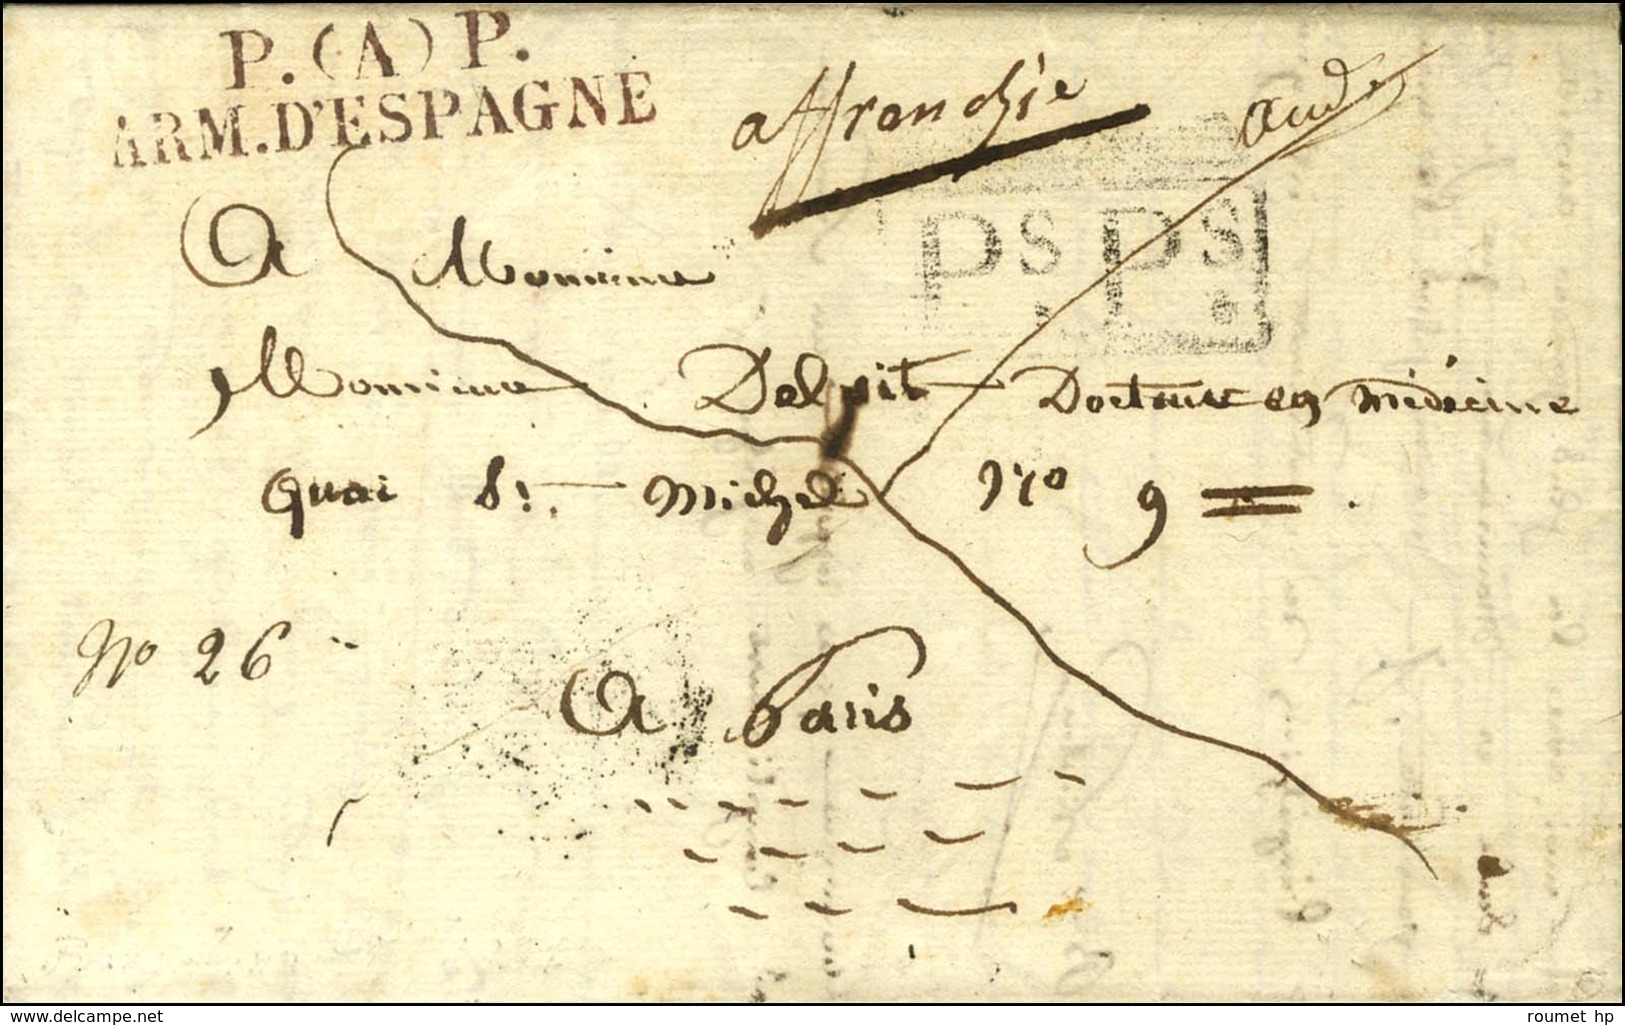 P. (A) P.
ARM. D'ESPAGNE
affranchie
aude
PS. PS.
A Monsieur
Monsieur Delpit Docteur en médecine
quai St. Michel No 9
No 26
A Paris
delcampe.net
roumet hp